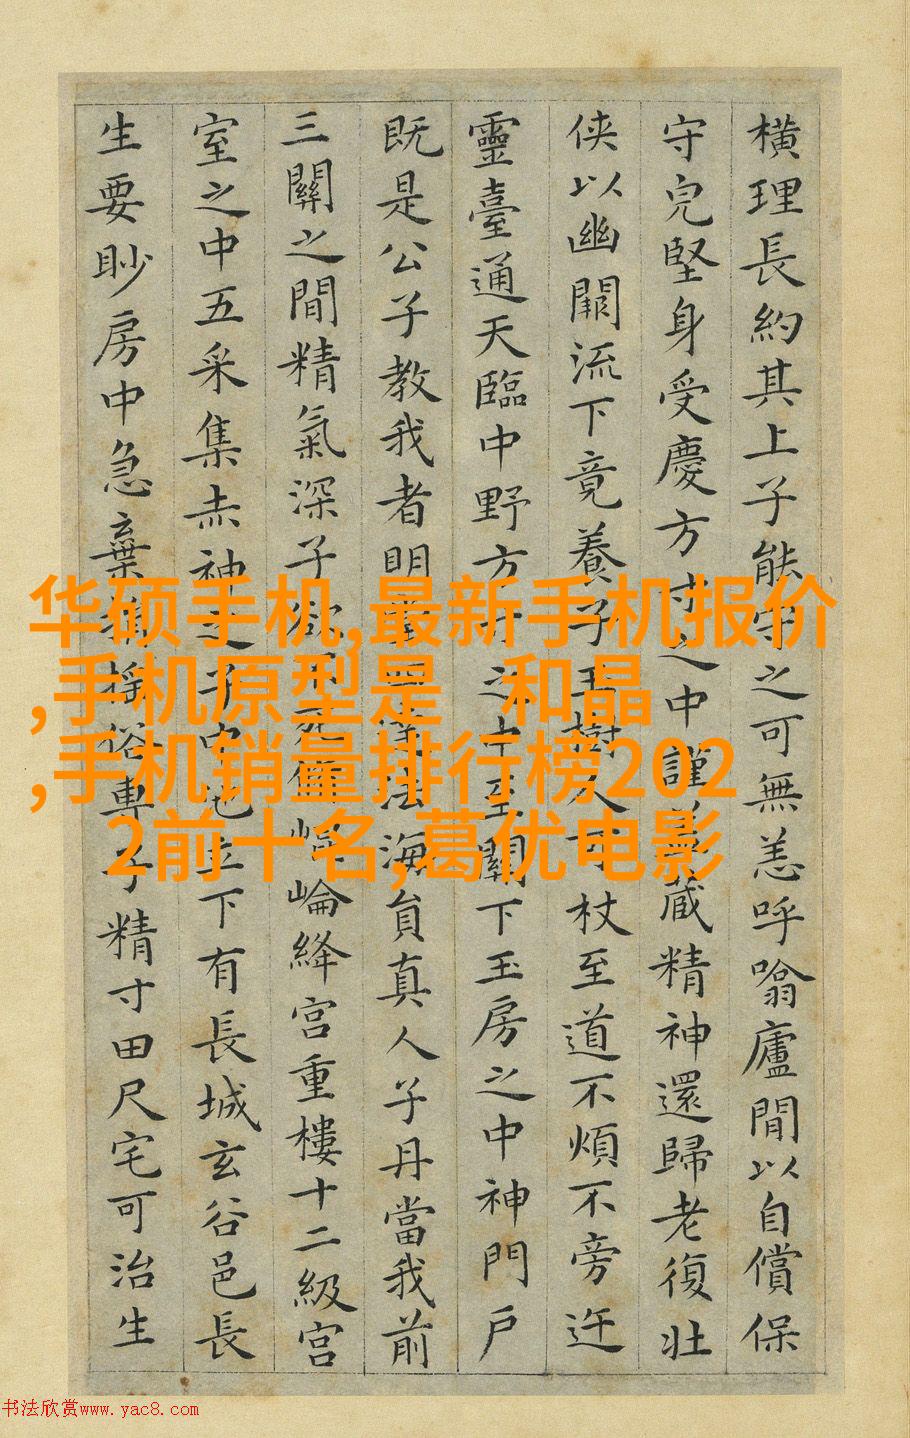 橫理長約其上子能守之可無恙呼噏廬間以自償保
守皃堅身受慶方寸之中謹蓋藏精神還歸老復壯
俠以幽闕流下竟養子玉樹人可杖至道不煩不旁迕
靈臺通天臨中野方寸之中至關下玉房之中神門戶
既是公子教我者明堂四達法海員真人子丹當我前
三關之間精氣深子欲不死脩崐崘絳宮重樓十二級宮
室之中五采集赤神之子中池立下有長城玄谷邑長
生要眇房中急棄捐搖俗專子精寸田尺宅可治生
华硕手机,最新手机报价
,手机原型是 和晶
,手机销量排行榜202
2前十名,葛优电影
书法欣赏www.yac8.com